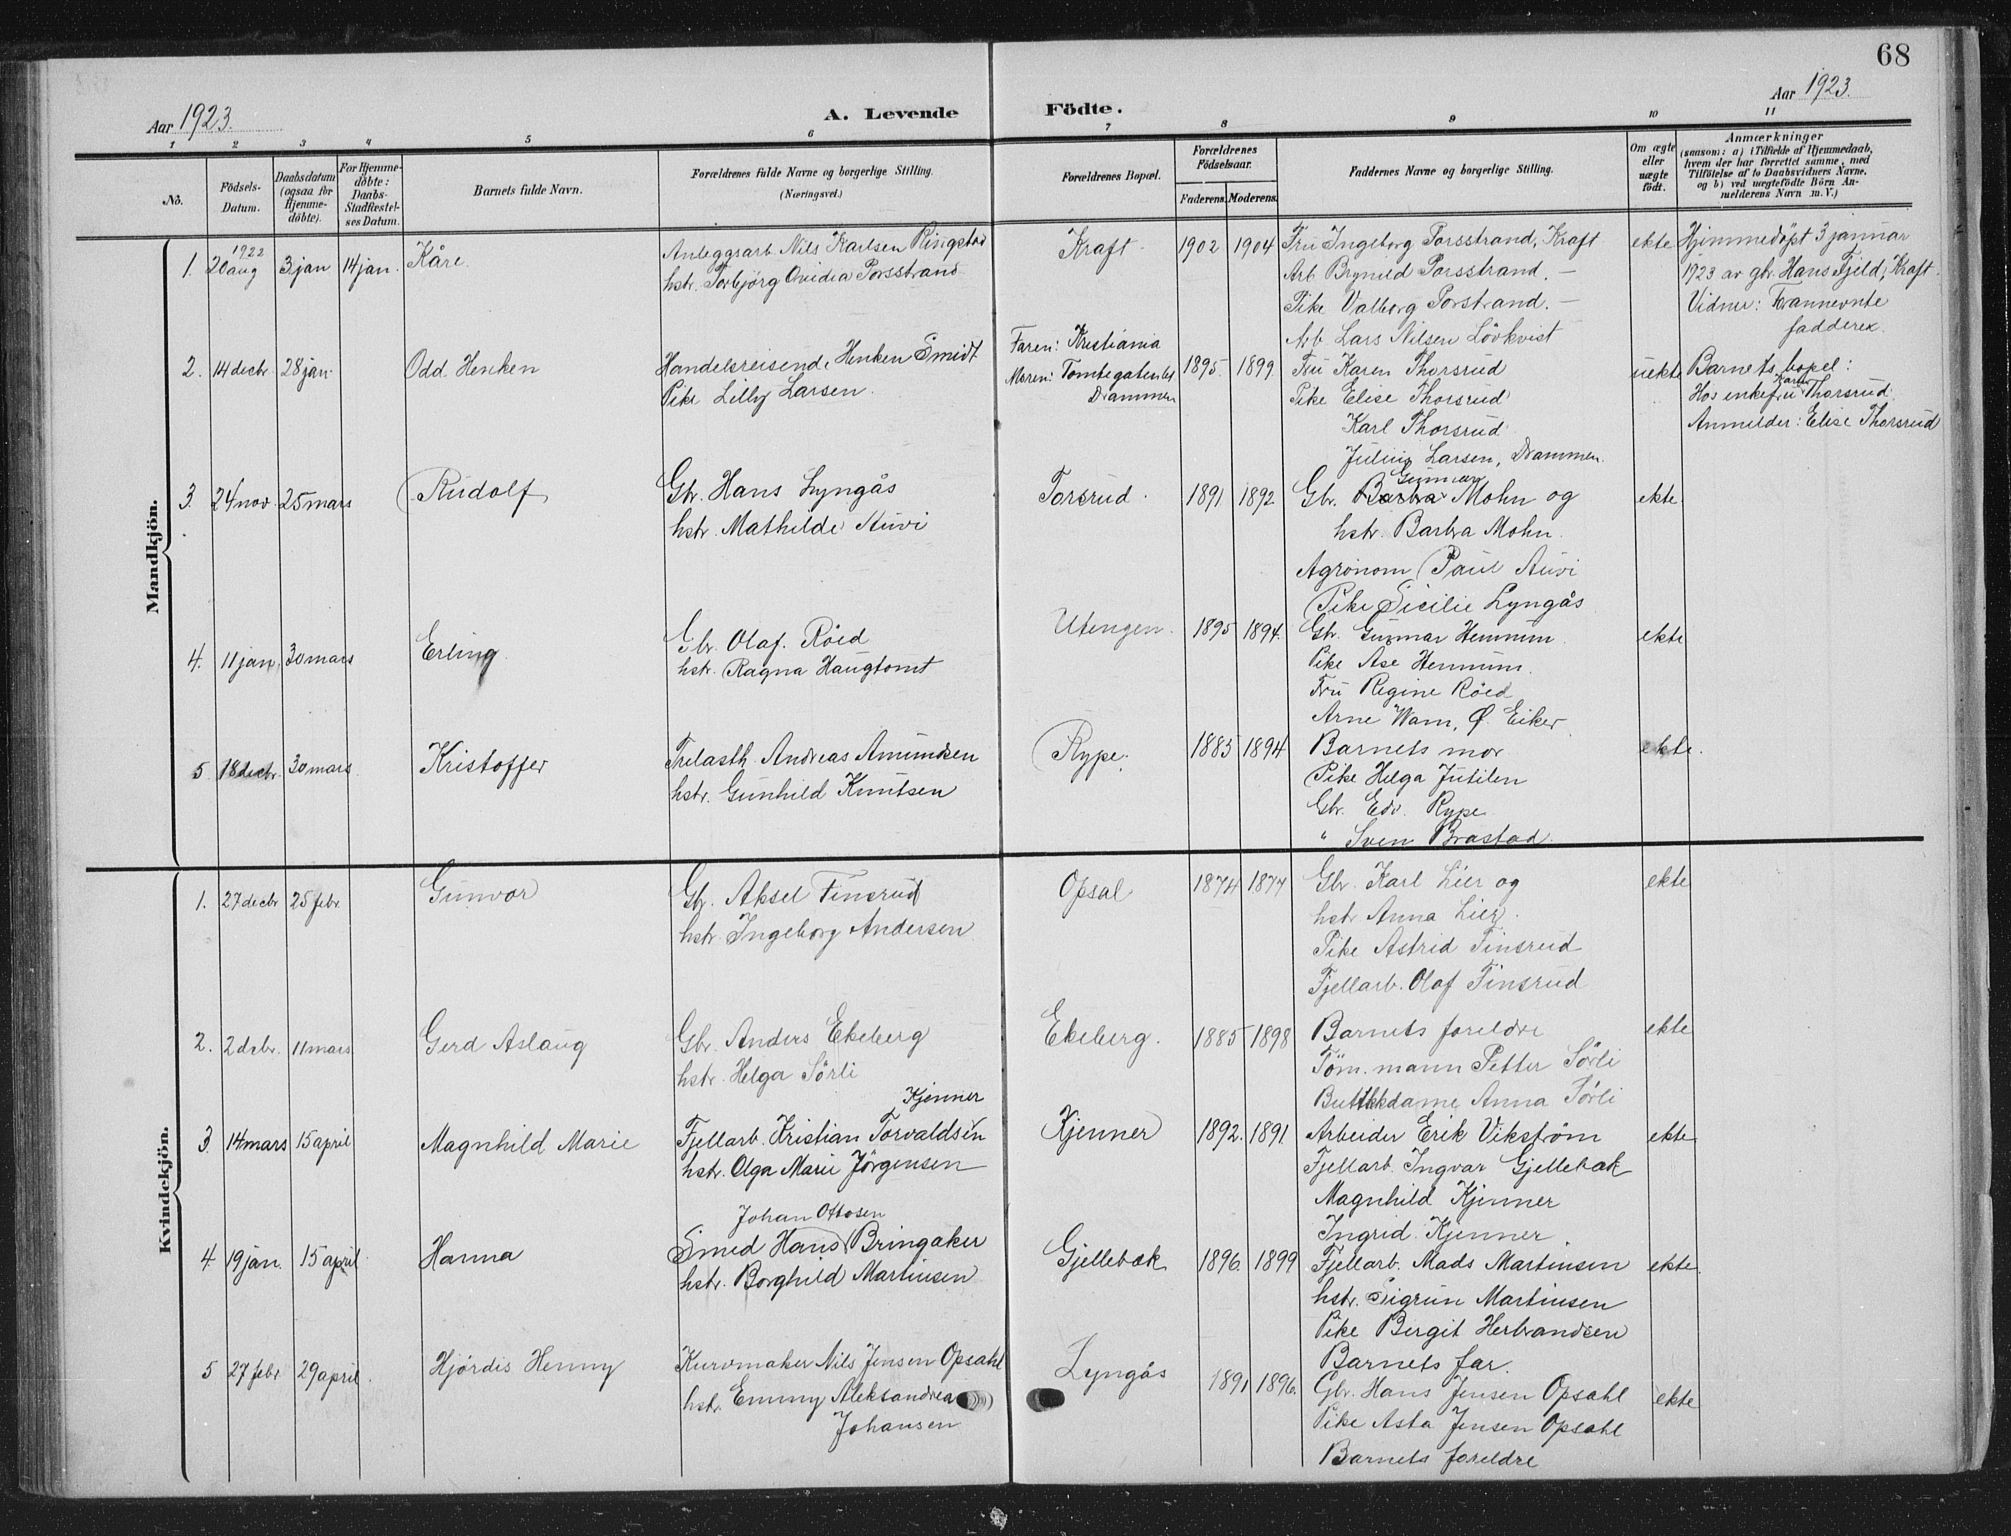 68
Aar 1923.
A. Levende Födte.
Aar 1923.
1 2 3 4 5 6 7 8 9 10 11
No.
Födsels-Datum.
Daabsdatum (ogsaa for Hjemme-döbte).
For Hjemme-döbte: Daabs-Stadfæstel-ses Datum.
Barnets fulde Navn.
Forældrenes fulde Navne og borgerlige Stilling. (Næringsvei.)
Forældrenes Bopæl.
Forældrenes Födselsaar.
Faderens. Moderens.
Faddernes Navne og borgerlige Stilling.
Om ægte eller uægte födt.
Anmærkninger
(saasom: a) i Tilfælde af Hjemmedaab, hvem der har forrettet samme, med Tilföielse af to Daabsvidners Navne, og b) ved uægtefödte Börn An-melderens Navn m. V.)
Mandkjön.
1. 1922 20 aug 3 jan 14 jan. Kåre
Anleggsarb. Nils Karlsen Ringstad
hstr. Torbjörg Ovidia Porsstrand
Kraft. 1902 1904
Fru Ingeborg Porsstrand, Kraft
Arb. Brynild Porsstrand. —
Pike Valborg Porstrand. —
Arb. Lars Nilsen Lövkvist
ekte
Hjimmedöpt 3 januar
1923 av gbr. Hans Fjeld, Kraft.
Vidner: Frannevnte
fadderex.
2. 14 decbr. 28 jan. Odd Henken
Handelsreisend. Henken Smidt
Pike Lilly Larsen.
Faren: Kristiania
Moren: Tomtegaten
Drammen
1895. 1899
Fru Karen Thorsrud
Pike Elise Thorsrud
Karl Thorsrud
Julius Larsen, Drammen.
uekte
Barnets bopel:
Hos enkefru Karen Thorsrud.
Anmelder: Elise Thorsrud
3. 24 nov. 25 mars Rudolf
Gbr. Hans Lyngås
hstr. Mathilde Auvi
Torsrud. 1891 1892
Gbr. Barbra Gunnar Mohn og
hstr. Barbra Mohn.
Agronom Paul Auvi
Pike Sicilie Lyngås
ekte.
4. 11 jan. 30 mars Erling
Gbr. Olaf Röed
hstr. Ragna Haugtomt
Utengen. 1895 1894.
Gbr. Gunnar Hennum.
Pike Åse Hennum.
Fru Regine Röed
Arne Wam, Ø. Eiker
ekte
5 18 decbr. 30 mars Kristoffer
Trelasth. Andreas Amundsen
hstr. Gunhild Knutsen
Rype. 1885 1894
Barnets mor
Pike Helga Jutilen
Gbr. Edv. Rype
" Sven Brastad.
ekte.
Kvindekjön.
1. 27 decbr 25 febr. Gunvor
Gbr. Aksel Finsrud
hstr. Ingeborg Andersen
Opsal 1874 1877
Gbr. Karl Lier og
hstr. Anna Lier.
Pike Astrid Finsrud
Fjellarb. Olaf Finsrud
ekte
2. 2 dcbr. 11 mars Gerd Aslaug
Gbr. Anders Ekeberg
hstr. Helga Sörli
Ekeberg. 1885 1898
Barnets foreldre
Töm.mann Petter Sörli
Butikkdame Anna Sörli
ekte
3. 14 mars 15 april Magnhild Marie
Kjenner
Fjellarb. Kristian Torvaldsen
hstr. Olga Marie Jörgensen
Kjenner 1892. 1891
Arbeider Erik Vikström
Fjellarb. Ingvar Gjellebæk
Magnhild Kjenner
Ingrid Kjenner.
ekte
4 19 jan. 15 april Hanna
Johan Ottosen
Smed Hans Bringaker
hstr. Borghild Martinsen
Gjellebæk 1896. 1899
Fjellarb. Mads Martinsen
hstr. Sigrun Martinsen
Pike Bergit Herbrandsen
Barnets far.
ekte.
5 27 febr. 29 april. Hjördis Henny
Kurvmaker Nils Jensen Opsahl
hstr. Emmy Aleksandrea
Johansen
Lyngås 1891 1896.
Gbr. Hans Jensen Opsahl
Pike Asta Jensen Opsahl
Barnets foreldre
ekte